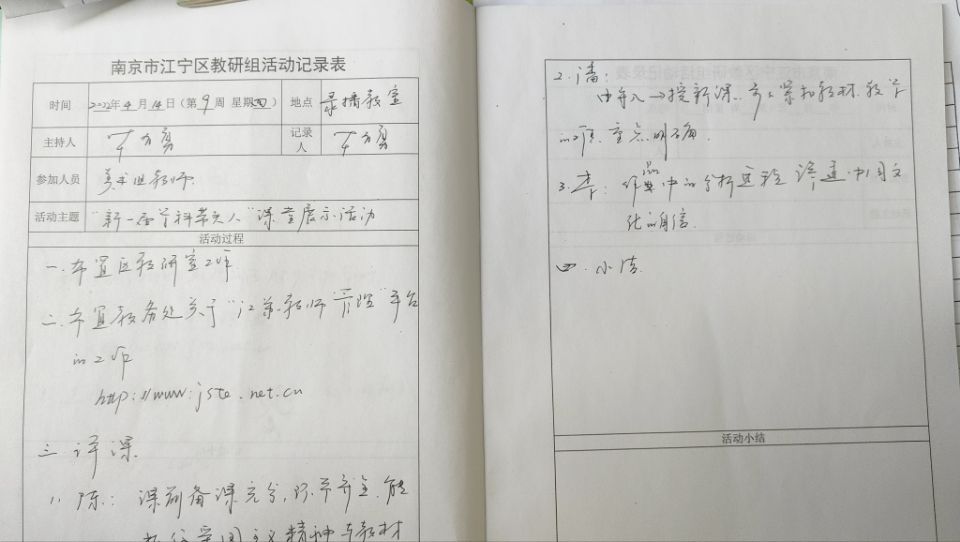 南京市江宁区教研组活动记录表
时间 2022年4月14日(第9周 星期四) 地点 录播教室
主持人 记录人
参加人员 美术组教师
活动主题 "新一届学科带头人"课堂展示活动
活动过程
一.布置区教研室工作
二.布置教务处关于"江苏教师管理"平台
的工作
http://www.jste.net.cn
三 评课
1. 陈: 课前备课充分,环节齐全.能
爱国主义精神与教材
2.潘:
由导入→授新课.
重点明确.
3.李: 作品中的分析过程 渗透中国文
化自信.
四.小结.
活动小结